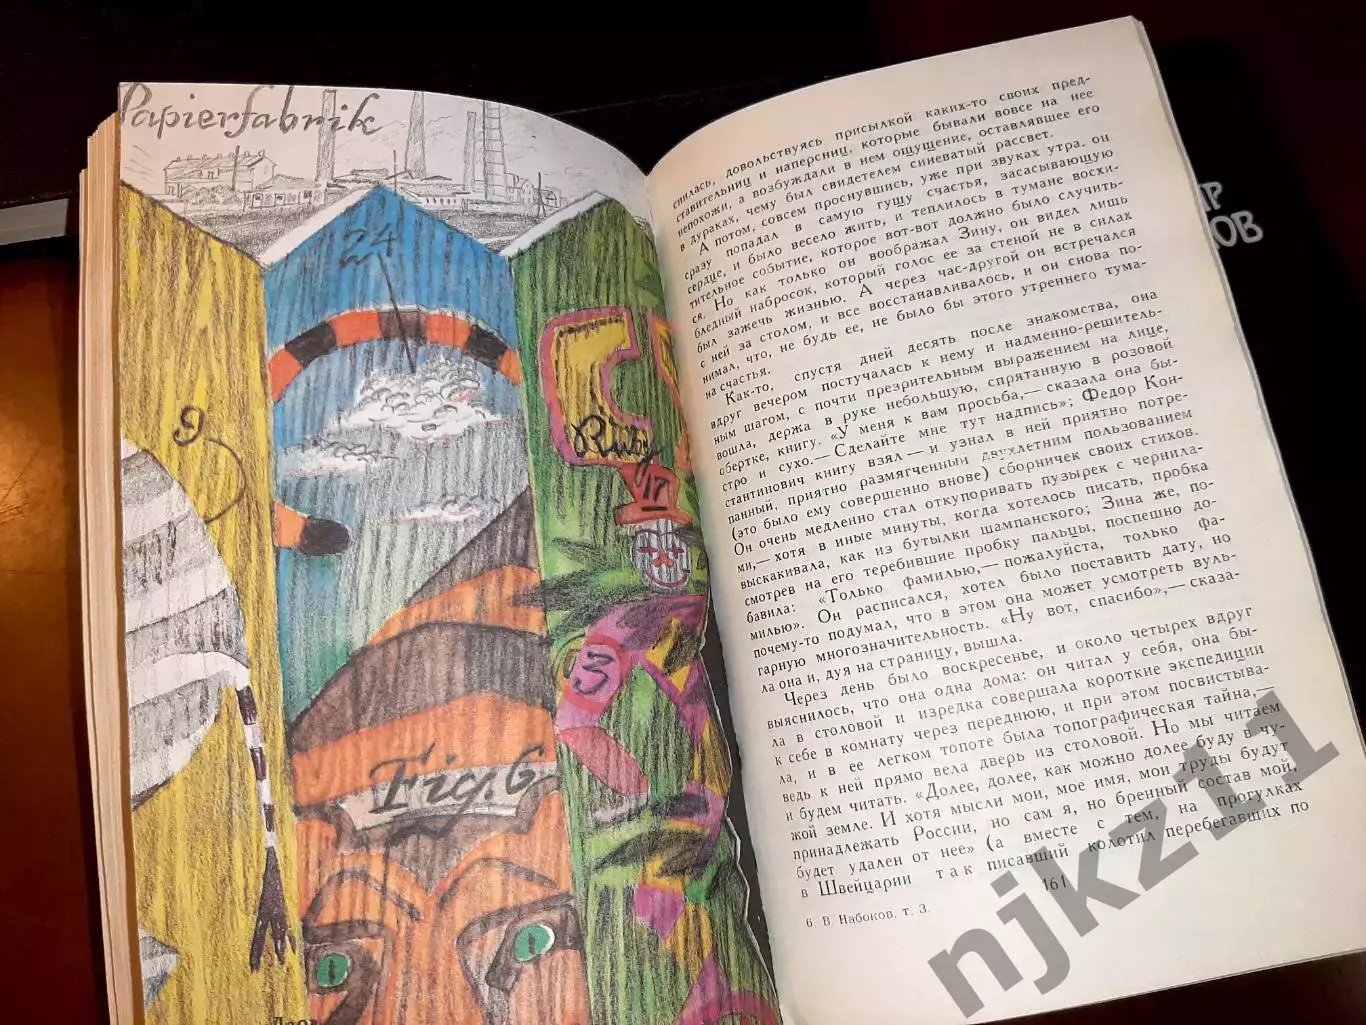 Papierfabrik
24
9
Ruby
17
13
Fig. 6
снилась, довольствуясь присылкой каких-то своих пред-
ставительниц и наперсниц, которые бывали вовсе на нее
непохожи, а возбуждали в нем ощущение, оставлявшее его
в дураках, чему был свидетелем синеватый рассвет.
А потом, совсем проснувшись, уже при звуках утра, он
сразу попадал в самую гущу счастья, засасывающую
сердце, и было весело жить, и теплилось в тумане восхи-
тительное событие, которое вот-вот должно было случить-
ся. Но как только он воображал Зину, он видел лишь
бледный набросок, который голос ее за стеной не в силах
был зажечь жизнью. А через час-другой он встречался
с ней за столом, и все восстанавливалось, и он снова по-
нимал, что, не будь ее, не было бы этого утреннего тума-
на счастья.
Как-то, спустя дней десять после знакомства, она
вдруг вечером постучалась к нему и надменно-решитель-
ным шагом, с почти презрительным выражением на лице,
вошла, держа в руке небольшую, спрятанную в розовой
обертке, книгу. «У меня к вам просьба,— сказала она бы-
стро и сухо.— Сделайте мне тут надпись»; Федор Кон-
стантинович книгу взял — и узнал в ней приятно потре-
панный, приятно размягченный двухлетним пользованием
(это было ему совершенно внове) сборничек своих стихов.
Он очень медленно стал откупоривать пузырек с чернила-
ми,— хотя в иные минуты, когда хотелось писать, пробка
выскакивала, как из бутылки шампанского; Зина же, по-
смотрев на его теребившие пробку пальцы, поспешно до-
бавила: «Только фамилью,— пожалуйста, только фа-
милью». Он расписался, хотел было поставить дату, но
почему-то подумал, что в этом она может усмотреть вуль-
гарную многозначительность. «Ну вот, спасибо»,— сказа-
ла она и, дуя на страницу, вышла.
Через день было воскресенье, и около четырех вдруг
выяснилось, что она одна дома: он читал у себя, она бы-
ла в столовой и изредка совершала короткие экспедиции
к себе в комнату через переднюю, и при этом посвистыва-
ла, и в ее легком топоте была топографическая тайна,—
ведь к ней прямо вела дверь из столовой. Но мы читаем
и будем читать. «Долее, долее, как можно долее буду в чу-
жой земле. И хотя мысли мои, мое имя, мои труды будут
принадлежать России, но сам я, но бренный состав мой,
будет удален от нее» (а вместе с тем, на прогулках
в Швейцарии так писавший колотил перебегавших по
161
6 В. Набоков, т. 3.
njkz11